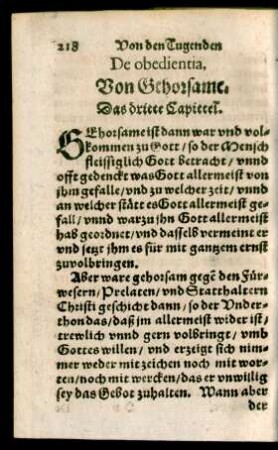 218 Von den Tugenden
De obedientia,
Von Gehorsame.
Das dritte Capittel.
GEhorsame ist dann war vnd vol-
kommen zu Gott / so der Mensch
fleissiglich Gott betracht / vnnd
offt gedenckt was Gott allermeist von
jhm gefalle / vnd zu welcher zeit / vnnd
an welcher stätt es Gott allermeist ge-
fall / vnnd warzu jhn Gott allermeist
hab geordnet / vnd dasselb vermeint er
vnd jetzt jhm es für mit gantzem ernst
zuvolbringen.
Aber ware gehorsam gegē den Für-
wesern / Prelaten / vnd Statthaltern
Christi geschicht dann / so der Vnder-
thon das / daß jm allermeist wider ist /
trewlich vnnd gern volbringt / vmb
Gottes willen / vnd erzeigt sich nim-
mer weder mit zeichen noch mit wor-
ten / noch mit wercken / das er vnwillig
sey das Gebot zuhalten. Wann aber
der